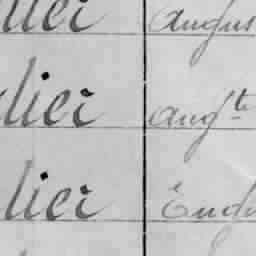 lier Augus
lier Aug.te
lier Eug